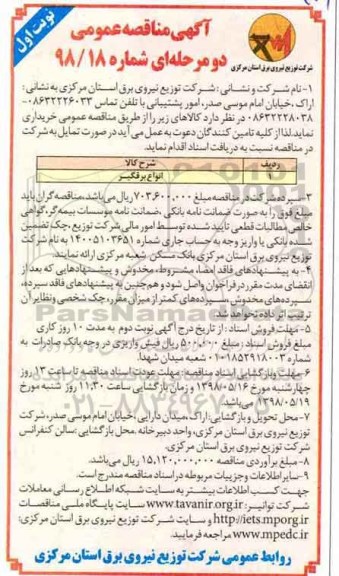 نوبت اول
آگهی مناقصه عمومی
دو مرحله‌ای شماره ۹۸/۱۸
شرکت توزیع نیروی برق استان مرکزی
۱- نام شرکت و نشانی : شرکت توزیع نیروی برق استان مرکزی به نشانی :
اراک ،خیابان امام موسی صدر، امور پشتیبانی با تلفن تماس ۰۸۶۳۲۲۲۶۰۳۳-
۰۸۶۳۲۲۲۸۰۳۸ در نظر دارد کالاهای زیر را از طریق مناقصه عمومی خریداری
نماید.لذا از کلیه تامین کنندگان دعوت به عمل می آید در صورت تمایل به شرکت
در مناقصه نسبت به دریافت اسناد اقدام نماید.
ردیف شرح کالا
۱ انواع برقگیر
۳- سپرده شرکت در مناقصه مبلغ ۷۰۳,۶۰۰,۰۰۰ ریال می باشد،مناقصه گران باید
مبلغ فوق را به صورت ضمانت نامه بانکی ،ضمانت نامه موسسات بیمه گر،گواهی
خالص مطالبات قطعی تایید شده توسط امور مالی شرکت توزیع ،چک تضمین
شده بانکی یا واریز وجه به حساب جاری شماره ۱۴۰۰۵۱۰۳۶۵۱ به نام شرکت
توزیع نیروی برق استان مرکزی بانک مسکن شعبه مرکزی ارائه نمایند.
۴- به پیشنهادهای فاقد امضاء، مشروط، مخدوش و پیشنهادهایی که بعد از
انقضای مدت مقرر در فراخوان واصل شود و هم چنین به پیشنهادهای فاقد سپرده،
سپرده‌های مخدوش، سپرده‌های کمتر از میزان مقرر، چک شخصی ونظایر آن
ترتیب اثر داده نخواهد شد.
۵- مهلت فروش اسناد : از تاریخ درج آگهی نوبت دوم به مدت ۱۰ روز کاری
مبلغ فروش اسناد : مبلغ ۵۰۰,۰۰۰ ریال فیش واریزی در وجه بانک صادرات به
شماره ۰۱۰۱۸۵۲۹۱۸۰۰۳ شعبه میدان شهدا.
۶- مهلت و بازگشایی اسناد مناقصه: مهلت عودت اسناد مناقصه تا ساعت ۱۳ روز
چهارشنبه مورخ ۱۳۹۸/۰۵/۱۶ و زمان بازگشایی ساعت ۱۱:۳۰ روز شنبه مورخ
۱۳۹۸/۰۵/۱۹ می باشد.
۷- محل تحویل و بازگشایی : اراک،میدان دارایی ،خیابان امام موسی صدر،شرکت
توزیع نیروی برق استان مرکزی، واحد دبیرخانه .محل بازگشایی :سالن کنفرانس
شرکت توزیع نیروی برق استان مرکزی.
۸- مبلغ برآوردی مناقصه ۱۵,۱۲۰,۰۰۰,۰۰۰ ریال می باشد.
۹- سایر اطلاعات و جزییات مربوطه در اسناد مناقصه مندرج است.
جهت کسب اطلاعات بیشتر به سایت شبکه اطلاع رسانی معاملات
شرکت توانیر: www.tavanir.org.ir سایت پایگاه ملی مناقصات
http://iets.mporg.ir و سایت شرکت توزیع نیروی برق استان مرکزی:
www.mpedc.ir مراجعه فرمایید.
روابط عمومی شرکت توزیع نیروی برق استان مرکزی